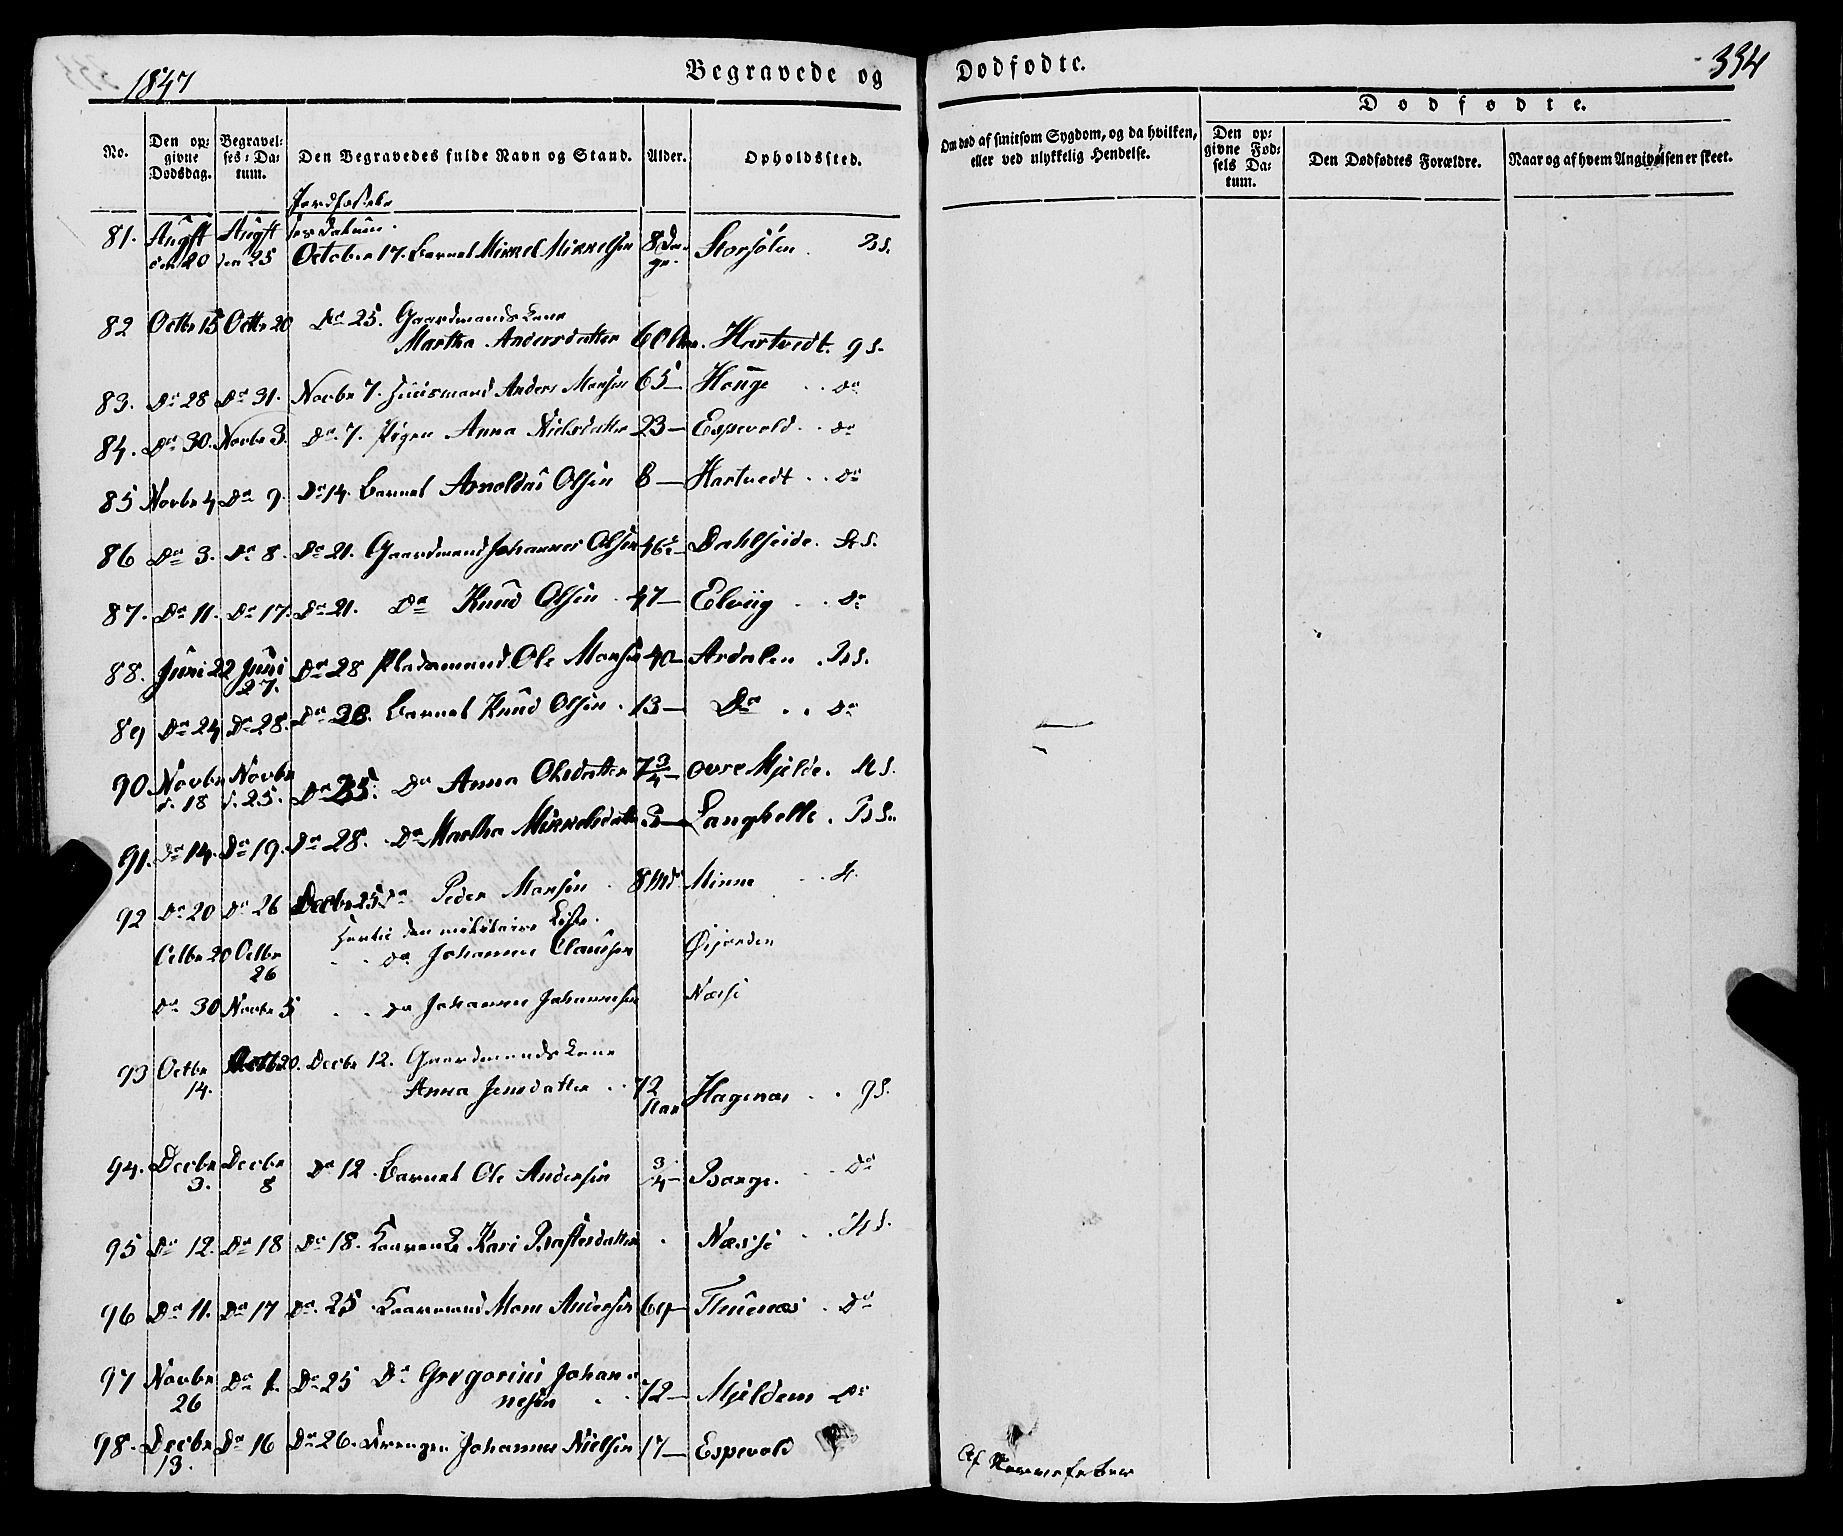 1847
Begravede og
Dødfødte.
334
Dødfødte.
No. Den opgivne Dødsdag. Begravelses-Datum. Den Begravedes fulde Navn og Stand. Alder. Opholdssted.
Om død af smitsom Sygdom, og da hvilken, eller ved ulykkelig Hendelse.
Den opgivne Fødsels Datum. Den Dødfødtes Forældre. Naar og af hvem Angivelsen er skeet.
81. Augst den 20 Augst den 25 October 17. Barnet Mikkel Mikkelsen 8 Dage. Storsæten.
82 Octbr 15 Octbr 20 Do 25. Gaardmandskone
Martha Andersdatter 60 Hartvedt. gs.
83. Do 28 Do 31. Novbr 7. Huusmand Anders Monsen 65 — Houge . . do
84. Do 30. Novbr 3. Do 7. Pigen Anna Nielsdatter 23 — Espevold . . do
85 Novbr 4 Do 9. Do 14. Barnet Arnoldus Olsen 8 — Hartvedt . . do
86 Do 3. Do 8. Do 21. Gaardmand Johannes Olsen 46½ — Dahlseide. S.
87. Do 11. Do 17. Do 21. Do Knud Olsen . 47 — Elviig . . Do
88. Juni 22 Juni 27. Do 28 Pladsmand Ole Monsen 40 — Ardalen . Bs.
89 Do 24 Do 28. Do 28. Barnet Knud Olsen . 13 — Do . . Do
90 Novbr d. 18 Novbr d. 25. Do 25. Do Anna Olsdatter 7¾ — Øvre Mjelde. Hs.
91. Do 14. Do 19. Do 28. Do Martha Mikkelsdatter Langhelle . Bs.
92 Do 20 Do 26 Decbr 25 Do Peder Monsen . 8 Md Minne . . H.
den militaire Liste.
Octbr 20 Octbr 26 . . do Johannes Clausen Øijorden
Do 30 Novbr 5 . . do Johannes Johannesen Næsse
93 Octbr 14. Octb 20. Decbr 12. Gaardmandskone
Anna Jensdatter . . 72 Aar Hagenæs . . gs.
94. Decbr 3. Decbr 8 Do 12 . Barnet Ole Andersen ¾ — Borge. . . Do
95 Do 12. Do 18 Do 18. Kari . Næsse . . Hs
96 Do 11. Do 17 Do. 25 Mons Andersen 69 — . Do
97 Novbr 26 Do 1. Do 25 Do Gregorius Johan=
nesen . . 72 — Mjeldem Do
98. Decbr 13. Do 16 Do 26. Drengen Johannes Nielsen 17 — Espevold
Af Nervefeber